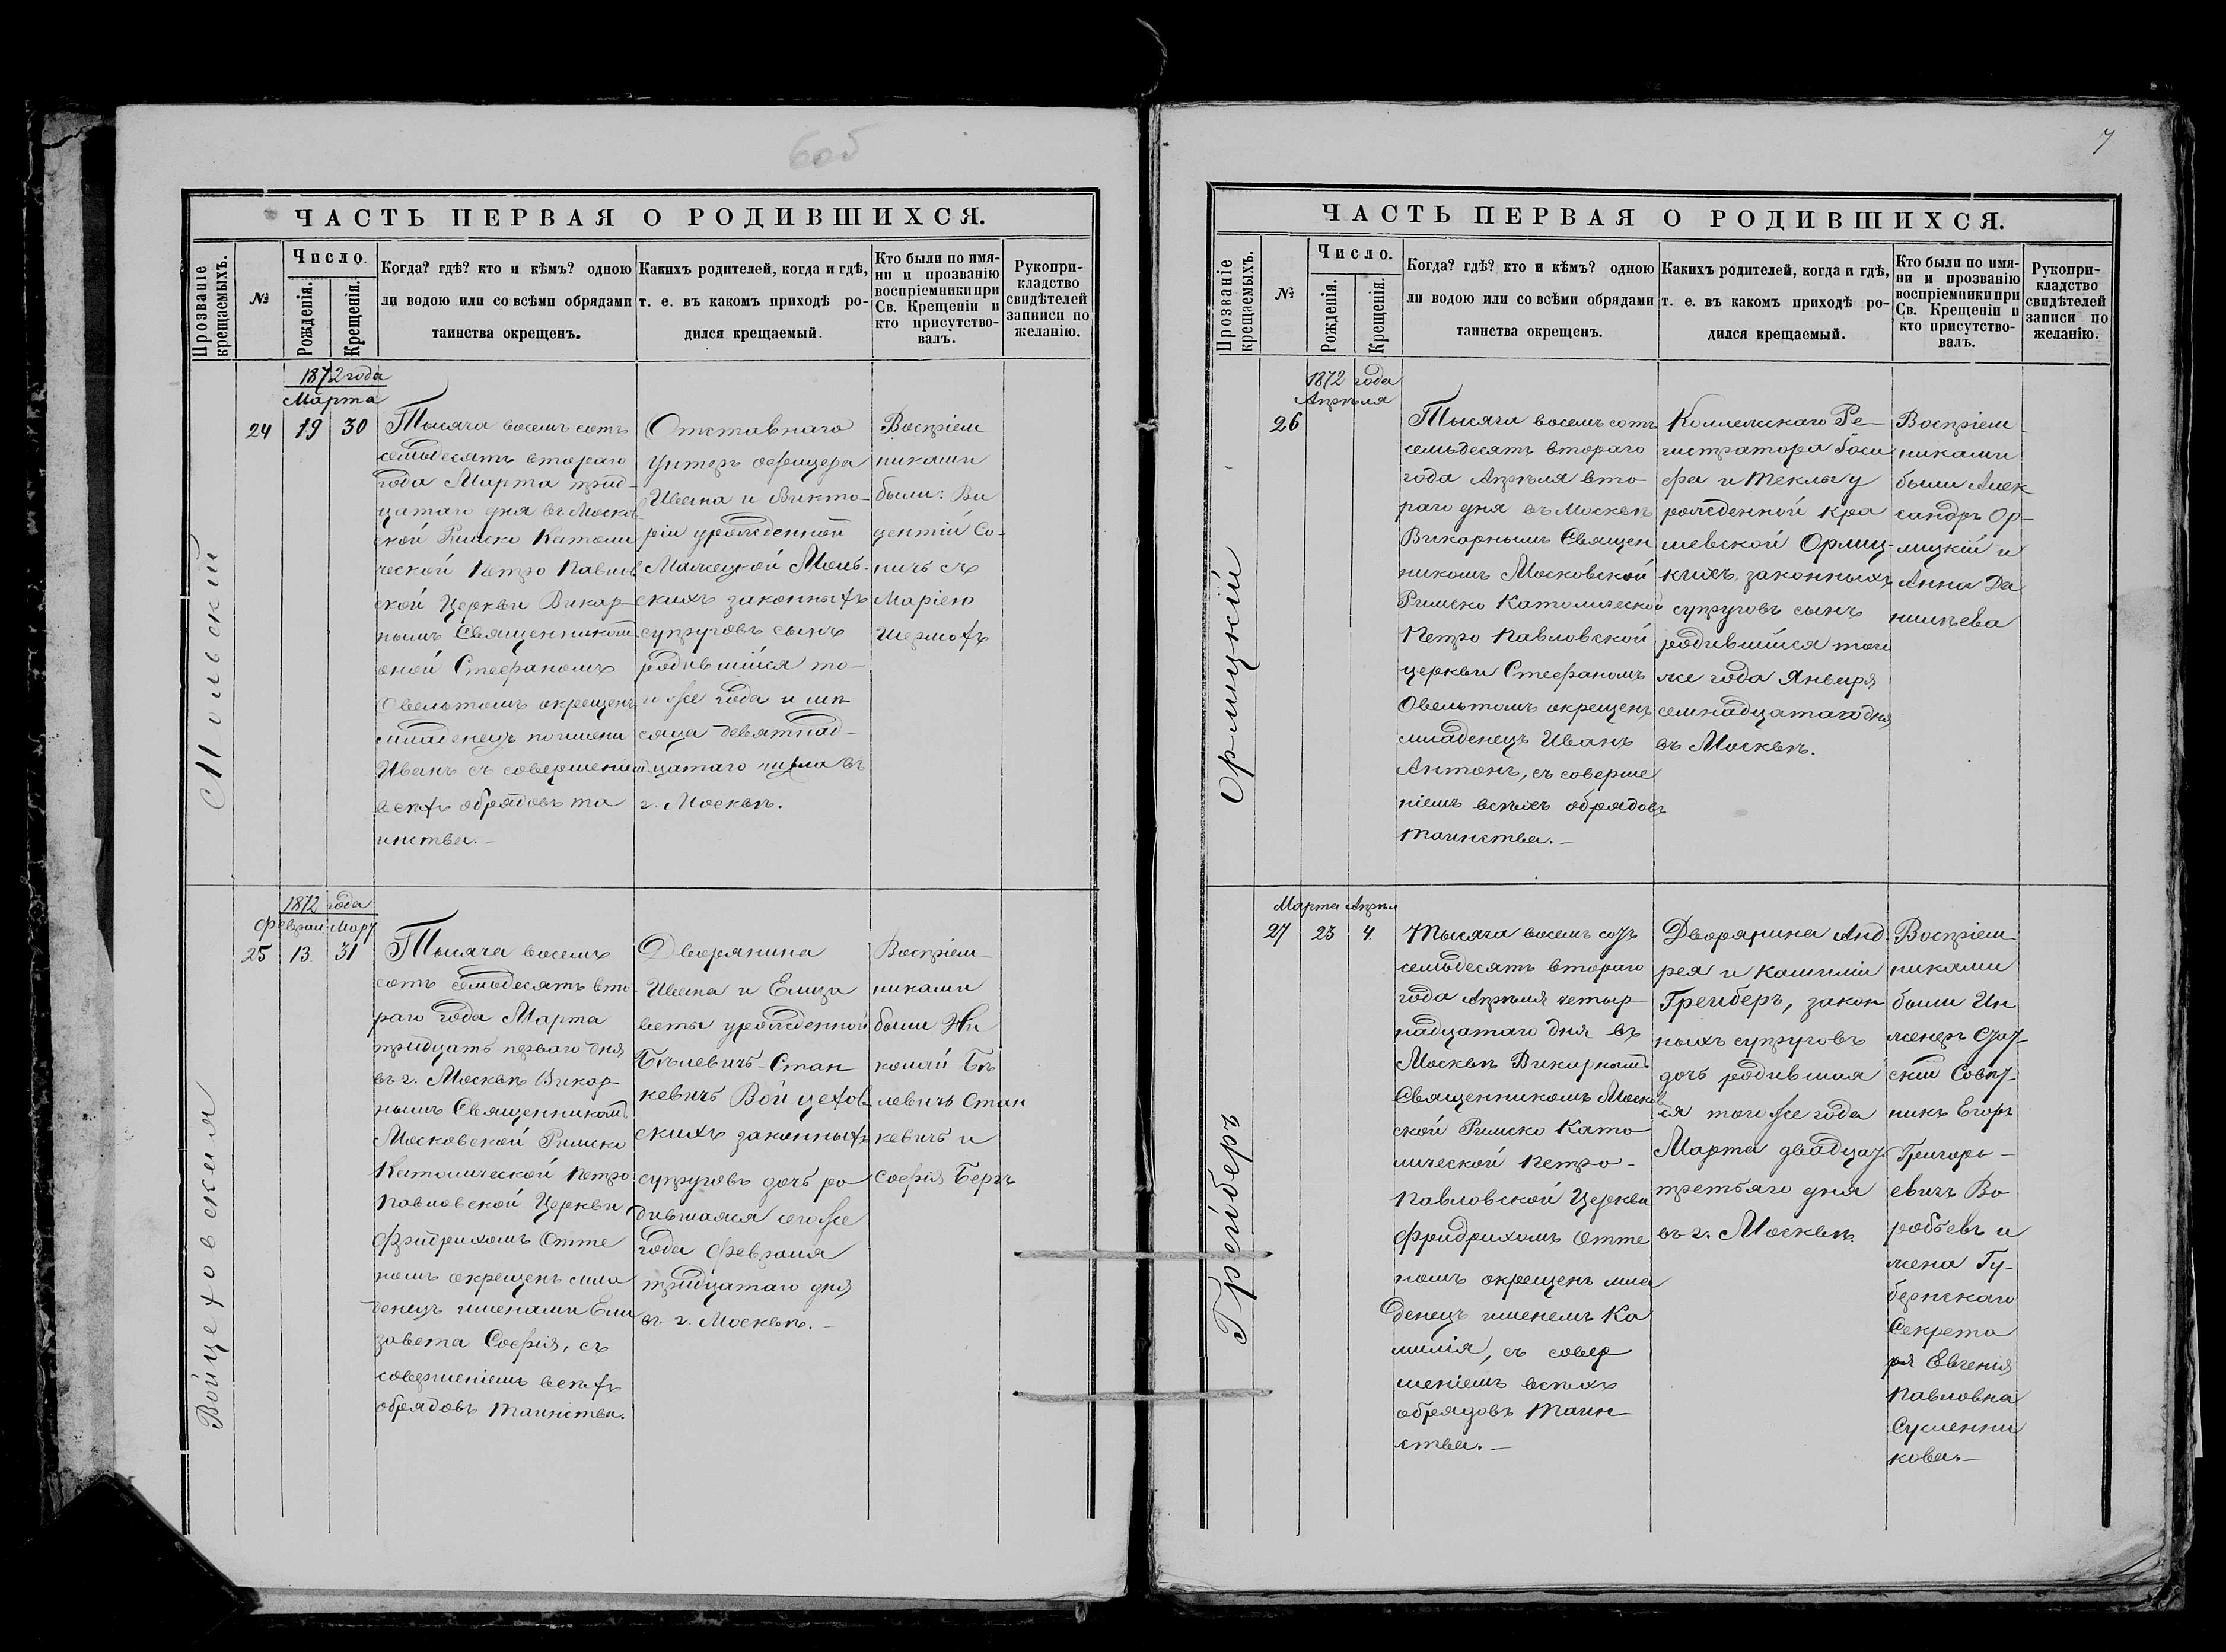 6об
ЧАСТЬ ПЕРВАЯ О РОДИВШИХСЯ.
Прозваніе крещаемыхъ.
№
Число.
Рожденія.
Крещенія.
Когда? гдѣ? кто и кѣмъ? одною
ли водою или со всѣми обрядами
таинства окрещенъ.
Какихъ родителей, когда и гдѣ,
т. е. въ какомъ приходѣ ро-
дился крещаемый.
Кто были по имя-
ни и прозванію
воспріемники при
Св. Крещеніи и
кто присутство-
валъ.
Рукопри-
кладство
свидѣтелей
записи по
желанію.
1872 года
Марта
24 19 30
Тысяча восемь сотъ
семьдесятъ втораго
года Марта трид-
цатаго дня въ Москов
ской Римско Католи
ческой Петро Павлов
ской Церкви Викар-
нымъ Священникомъ
оной Стефаномъ
Овельтомъ окрещенъ
младенецъ по имени
Иванъ съ совершеніем
всѣхъ обрядовъ та
инства.-
Отставнаго
Унтеръ офицера
Ивана и Викто-
ріи урожденной
скихъ законныхъ
супруговъ сынъ
родившійся то-
го же года и мѣ
сяца девятнад-
цатаго числа въ
г. Москвѣ.
Воспріем
никами
были: Ви
центій Со-
Маріею
1872 года
Феврал Март
25 13 31
Войцеховская
Тысяча восемь
сотъ семьдесятъ вто
раго года Марта
тридцать перваго дня
въ г. Москвѣ Викар
нымъ Священникомъ
Московской Римско
Католической Петро
Павловской Церкви
Фридрихомъ Отте
номъ окрещенъ мла
денецъ именами Ели
завета Софія, съ
совершеніемъ всѣхъ
обрядовъ таинства.
Дворянина
Ивана и Елиза
веты урожденной
Бѣлевичъ-Стан
кевичъ Войцехов-
скихъ законныхъ
супруговъ дочь ро
дившаяся сего же
года Февраля
тридцатаго дня
въ г. Москвѣ.-
Воспріем-
никами
были Ни
колай Бѣ
левичъ Стан
кевичъ и
Софія Бергъ
7
ЧАСТЬ ПЕРВАЯ О РОДИВШИХСЯ.
Прозваніе крещаемыхъ.
№
Число.
Рожденія.
Крещенія.
Когда? гдѣ? кто и кѣмъ? одною
ли водою или со всѣми обрядами
таинства окрещенъ.
Какихъ родителей, когда и гдѣ,
т. е. въ какомъ приходѣ ро-
дился крещаемый.
Кто были по имя-
ни и прозванію
воспріемники при
Св. Крещеніи и
кто присутство-
валъ.
Рукопри-
кладство
свидѣтелей
записи по
желанію.
1872 года
Апрѣля
26
Орлицкій
Тысяча восемь сотъ
семьдесятъ втораго
года Апрѣля вто-
раго дня въ Москвѣ
Викарнымъ Священ
никомъ Московской
Римско Католической
Петро Павловской
церкви Стефаномъ
Овельтомъ окрещенъ
младенецъ Иванъ
Антонъ, съ соверше
ніемъ всѣхъ обрядовъ
таинства.-
Коллежскаго Ре-
гистратора Іоси
фа и Теклы у
рожденной Кра
шевской Орлиц-
кихъ, законныхъ
супруговъ сынъ
родившійся того
же года Января
семнадцатаго дня
въ Москвѣ.
Воспріем-
никами
были Алек
сандръ Ор-
лицкій и
Анна Да
нилѣева
Марта Апрѣл
27 23 4
Грейберъ
Тысяча восемь сотъ
семьдесятъ втораго
года Апрѣля четыр
надцатаго дня въ
Москвѣ Викарнымъ
Священникомъ Москов
ской Римско Като
лической Петро-
Павловской Церкви
Фридрихомъ Отте
номъ окрещенъ мла
денецъ именемъ Ка
милія, съ совер
шеніемъ всѣхъ
обрядовъ таин
ства.-
Дворянина Анд
рея и Камиліи
Грейберъ, закон
ныхъ супруговъ
дочь родившая
ся того же года
Марта двадцат
третьяго дня
въ г. Москвѣ.
Воспріем-
никами
были Ин
женеръ Стат-
скій Совѣт-
никъ Егоръ
Григорь-
евичъ Во
робьевъ и
жена Гу-
бернскаго
Секрета
ря Евгенія
Павловна
Сусленни
кова.-